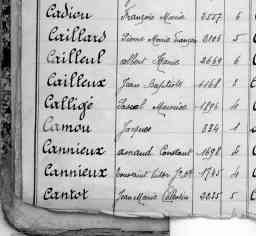 Cadiou François Marie 2557 6
Caillard Marie François 2106 5
Cailleul Albert Marie 2669 6
Cailleux Jean Baptiste 1168 3
Calligé Pascal Maurice 1894 4
Camou Jacques 234 1
Cannieux Armand Constant 1698 4
Cannieux Constant 1745 4
Cantot Jean Marie Célestin 2035 5